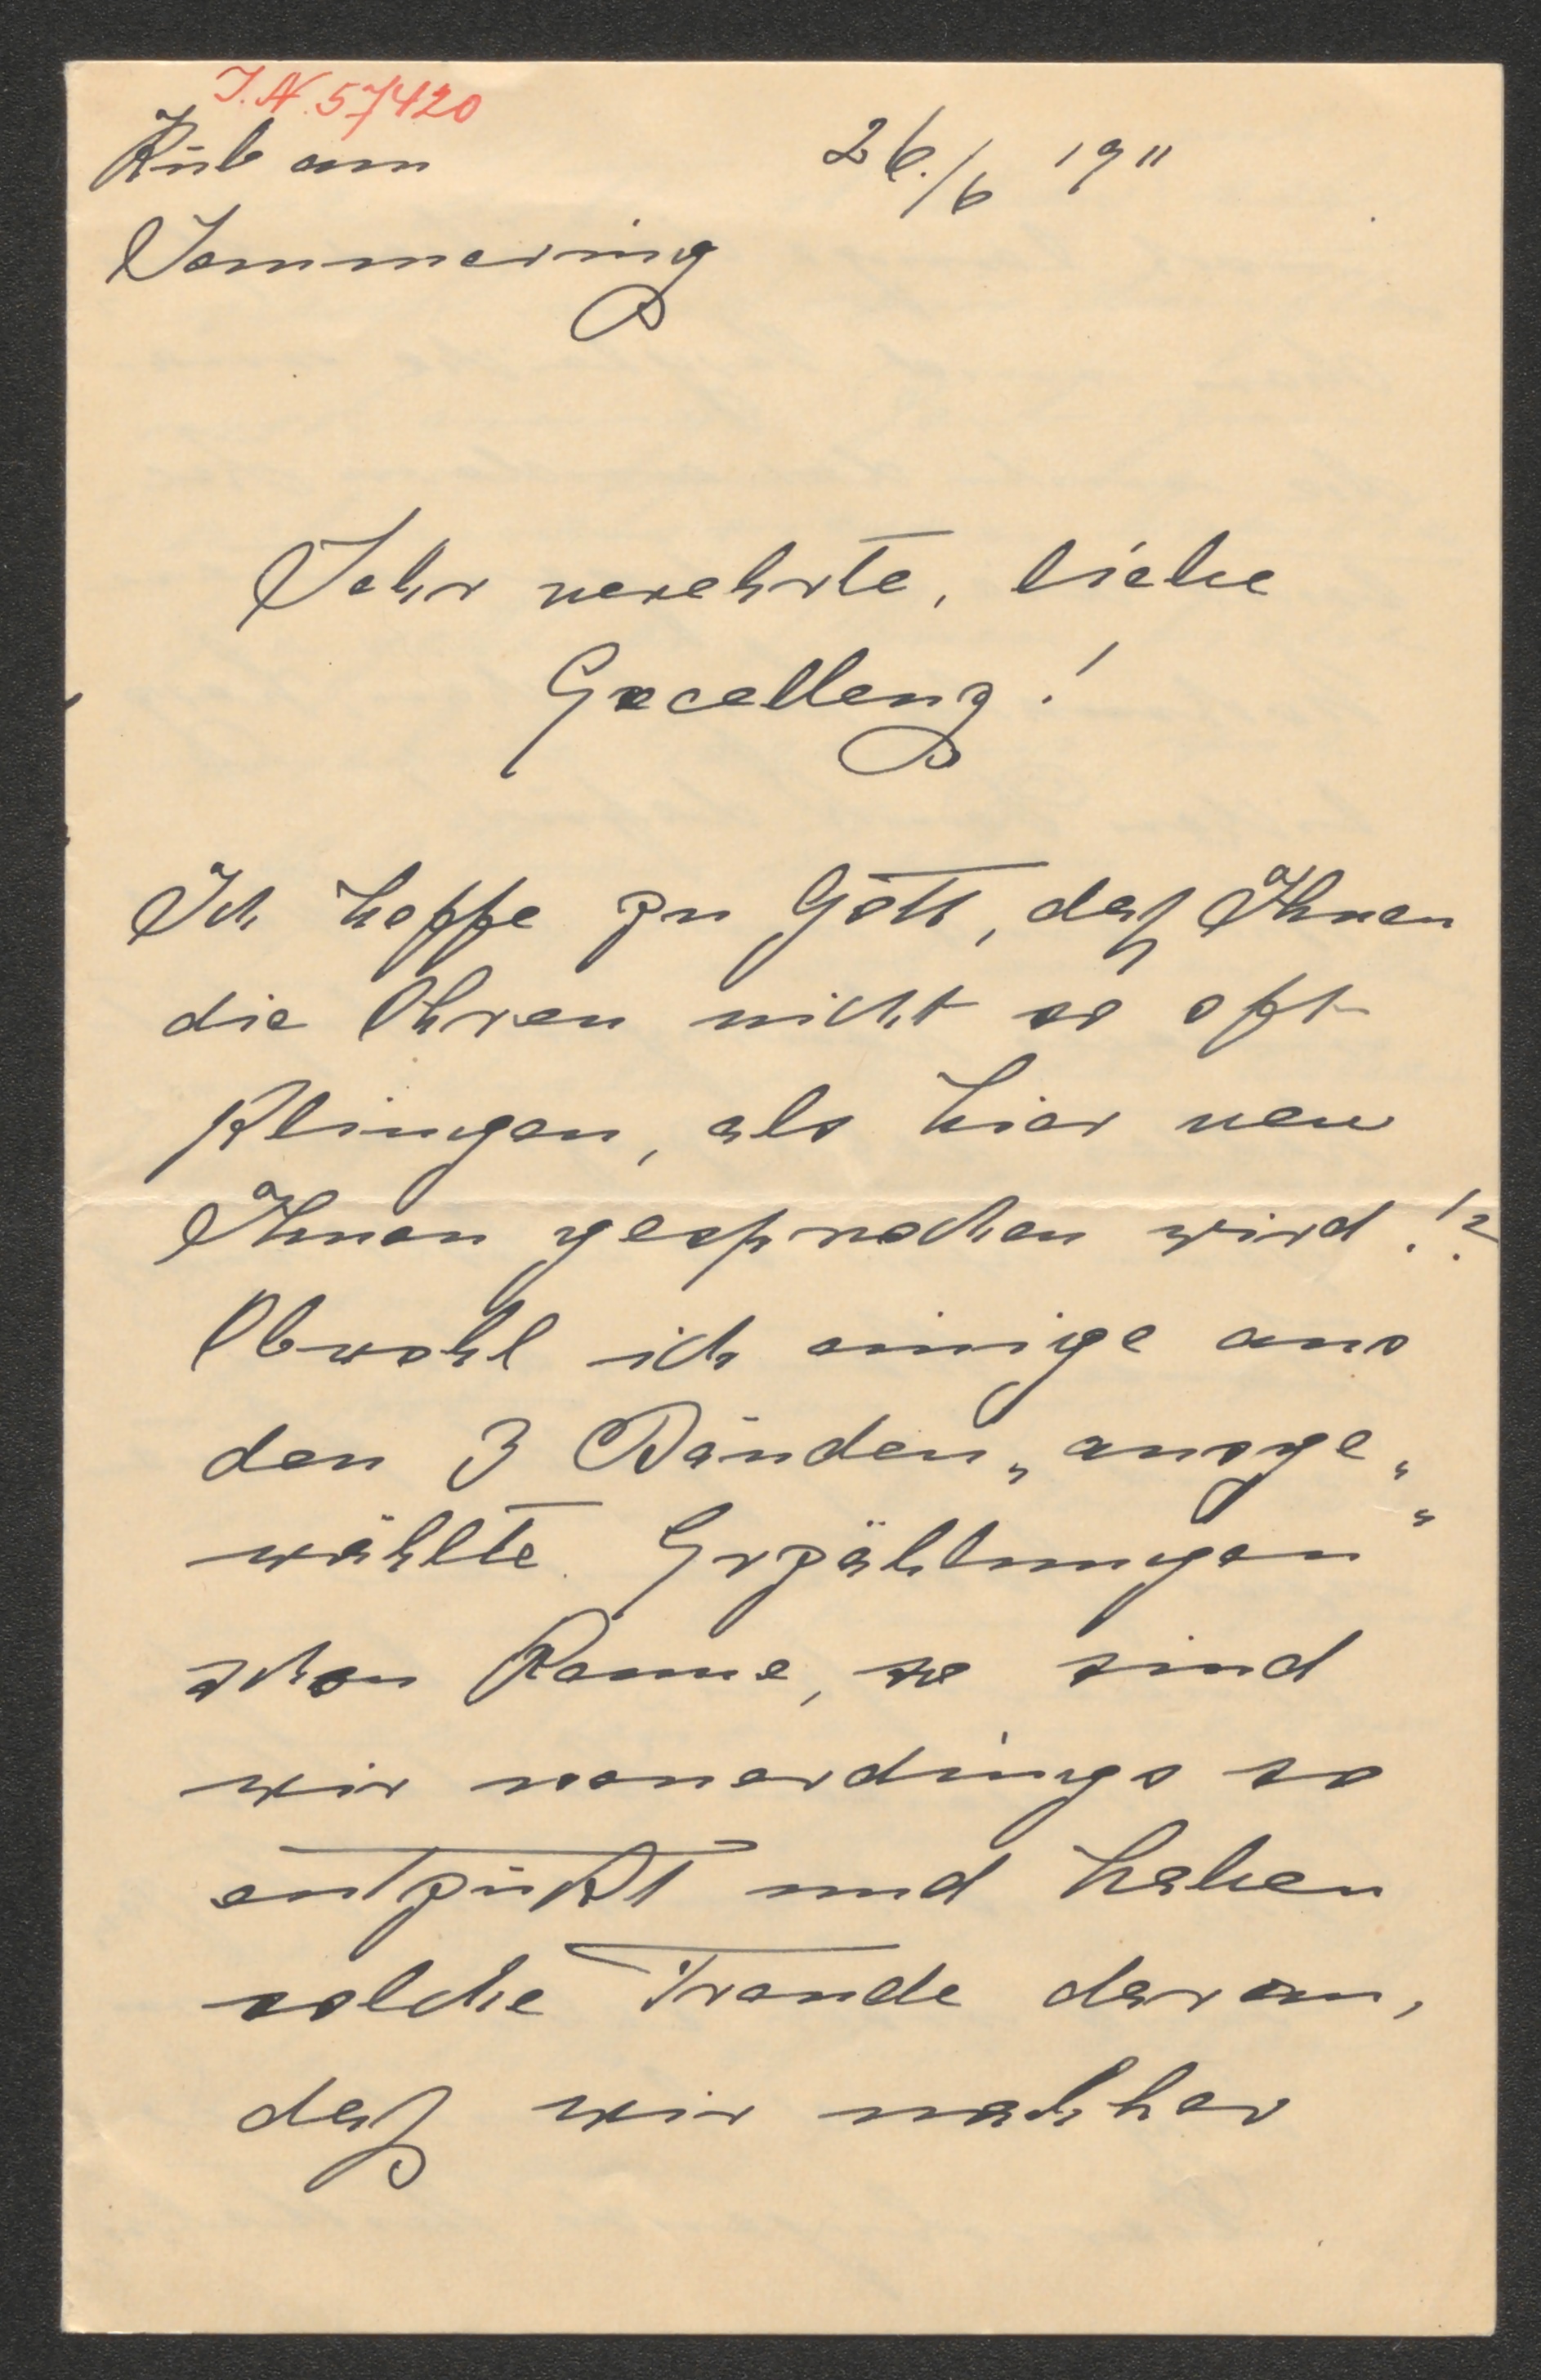 I.N. 57420
Küb am
Semmering
26./6 1911
Sehr verehrte, liebe
Excellenz!
Ich hoffe zu Gott, daß Ihnen
die Ohren nicht so oft
klingen, als hier von
Ihnen gesprochen wird!?
Obwohl ich einige aus
den 3 Bänden „ausge„
wählte Erzählungen“
schon kenne, so sind
wir neuerdings so
entzückt und haben
solche Freude daran,
daß wir nachher